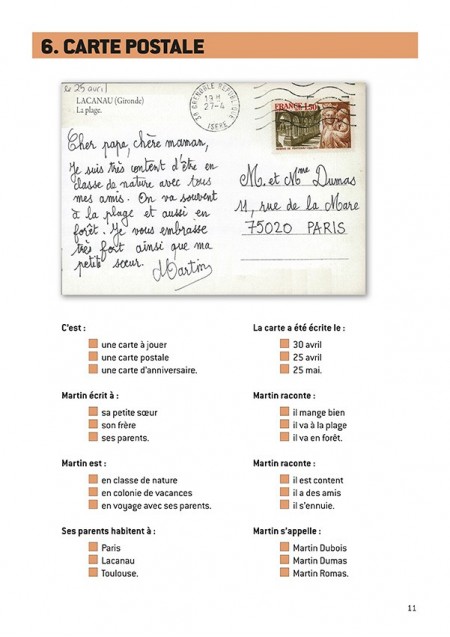 6. CARTE POSTALE
le 25 avril
LACANAU (Gironde)
La plage.
38 GRENOBLE REPUBLIQUE
19H
27-4
ISERE
FRANCE 1,50
Cher papa, chère maman,
Je suis très content d'être en
classe de nature avec tous
mes amis. On va souvent
à la plage et aussi en
forêt. Je vous embrasse
très fort ainsi que ma
petite sœur.
Martin
M. et Mme Dumas
11, rue de la Mare
75020 PARIS
C'est :
une carte à jouer
une carte postale
une carte d'anniversaire.
La carte a été écrite le :
30 avril
25 avril
25 mai.
Martin écrit à :
sa petite sœur
son frère
ses parents.
Martin raconte :
il mange bien
il va à la plage
il va en forêt.
Martin est :
en classe de nature
en colonie de vacances
en voyage avec ses parents.
Martin raconte :
il est content
il a des amis
il s'ennuie.
Ses parents habitent à :
Paris
Lacanau
Toulouse.
Martin s'appelle :
Martin Dubois
Martin Dumas
Martin Romas.
11